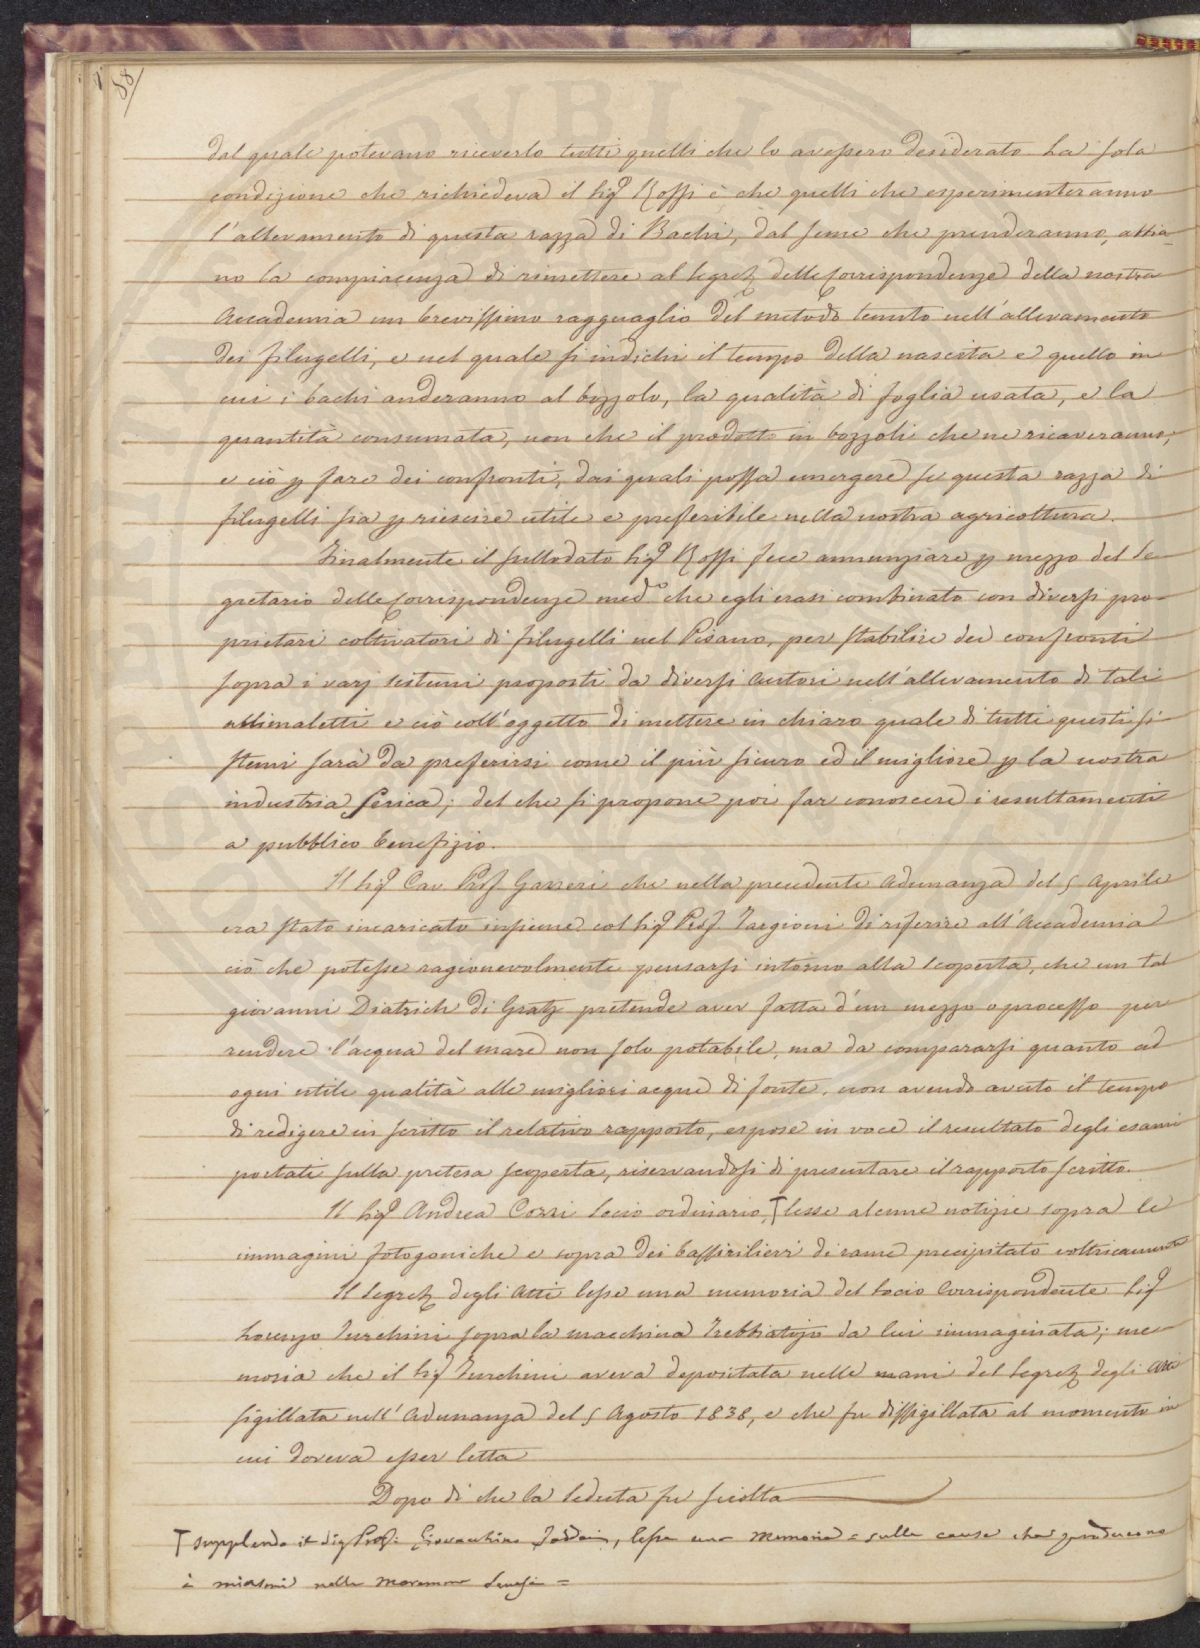 88/
dal quale potevano riceverlo tutti quelli che lo avessero desiderato. La sola
condizione che richiedeva il Sigʳ Rossi è che quelli che esperimenteranno
l'allevamento di questa razza di Bachi, dal seme che prenderanno, abbia-
no la compiacenza di rimettere al Segretº delle Corrispondenze della nostra
Accademia un brevissimo ragguaglio del metodo tenuto nell'allevamento
dei filugelli, e nel quale si indichi il tempo della nascita e quello in
cui i bachi anderanno al bozzolo, la qualità di foglia usata, e la
quantità consumata, non che il prodotto in bozzoli che ne ricaveranno;
e ciò p fare dei confronti, dai quali possa emergere se questa razza di
filugelli sia p riescire utile e preferibile nella nostra agricoltura.
Finalmente il sullodato Sigʳ Rossi fece annunziare p mezzo del Se-
gretario delle Corrispondenze medº che egli erasi combinato con diversi pro-
prietari coltivatori di filugelli nel Pisano, per stabilire dei confronti
sopra i varj sistemi proposti da diversi Autori nell'allevamento di tali
animaletti e ciò coll'oggetto di mettere in chiaro quale di tutti questi si-
stemi sarà da preferirsi come il più sicuro ed il migliore p la nostra
industria serica; del che si propone poi far conoscere i resultamenti
a pubblico benefizio.
Il Sigʳ Cav Prof Gazzeri che nella precedente Adunanza del 5 Aprile
era stato incaricato insieme col Sigʳ Prof. Targioni di riferire all'Accademia
ciò che potesse ragionevolmente pensarsi intorno alla scoperta, che un tal
Giovanni Diatrich di Gratz pretende aver fatta d'un mezzo o processo per
rendere l'acqua del mare non solo potabile, ma da compararsi quanto ad
ogni utile qualità alle migliori acque di fonte, non avendo avuto il tempo
di redigere in scritto il relativo rapporto, espose in voce il resultato degli esami
portati sulla pretesa scoperta, riservandosi di presentare il rapporto scritto.
Il Sigʳ Andrea Cozzi Socio ordinario, † lesse alcune notizie sopra le
immagini fotogeniche e sopra dei bassirilievi di rame precipitato voltricamente
Il Segretº degli Atti lesse una memoria del Socio Corrispondente Sigʳ
Lorenzo Turchini sopra la macchina Trebbiatojo da lui immaginata; me-
moria che il Sigʳ Turchini aveva depositata nelle mani del Segretº degli Atti
sigillata nell'Adunanza del 5 Agosto 1838, e che fu dissigillata al momento in
cui doveva esser letta
Dopo di che la Seduta fu sciolta
† supplendo il Sig Prof. Giovacchino Taddei, lesse una Memoria = sulle cause che producono
i miasmi nelle Maremme =